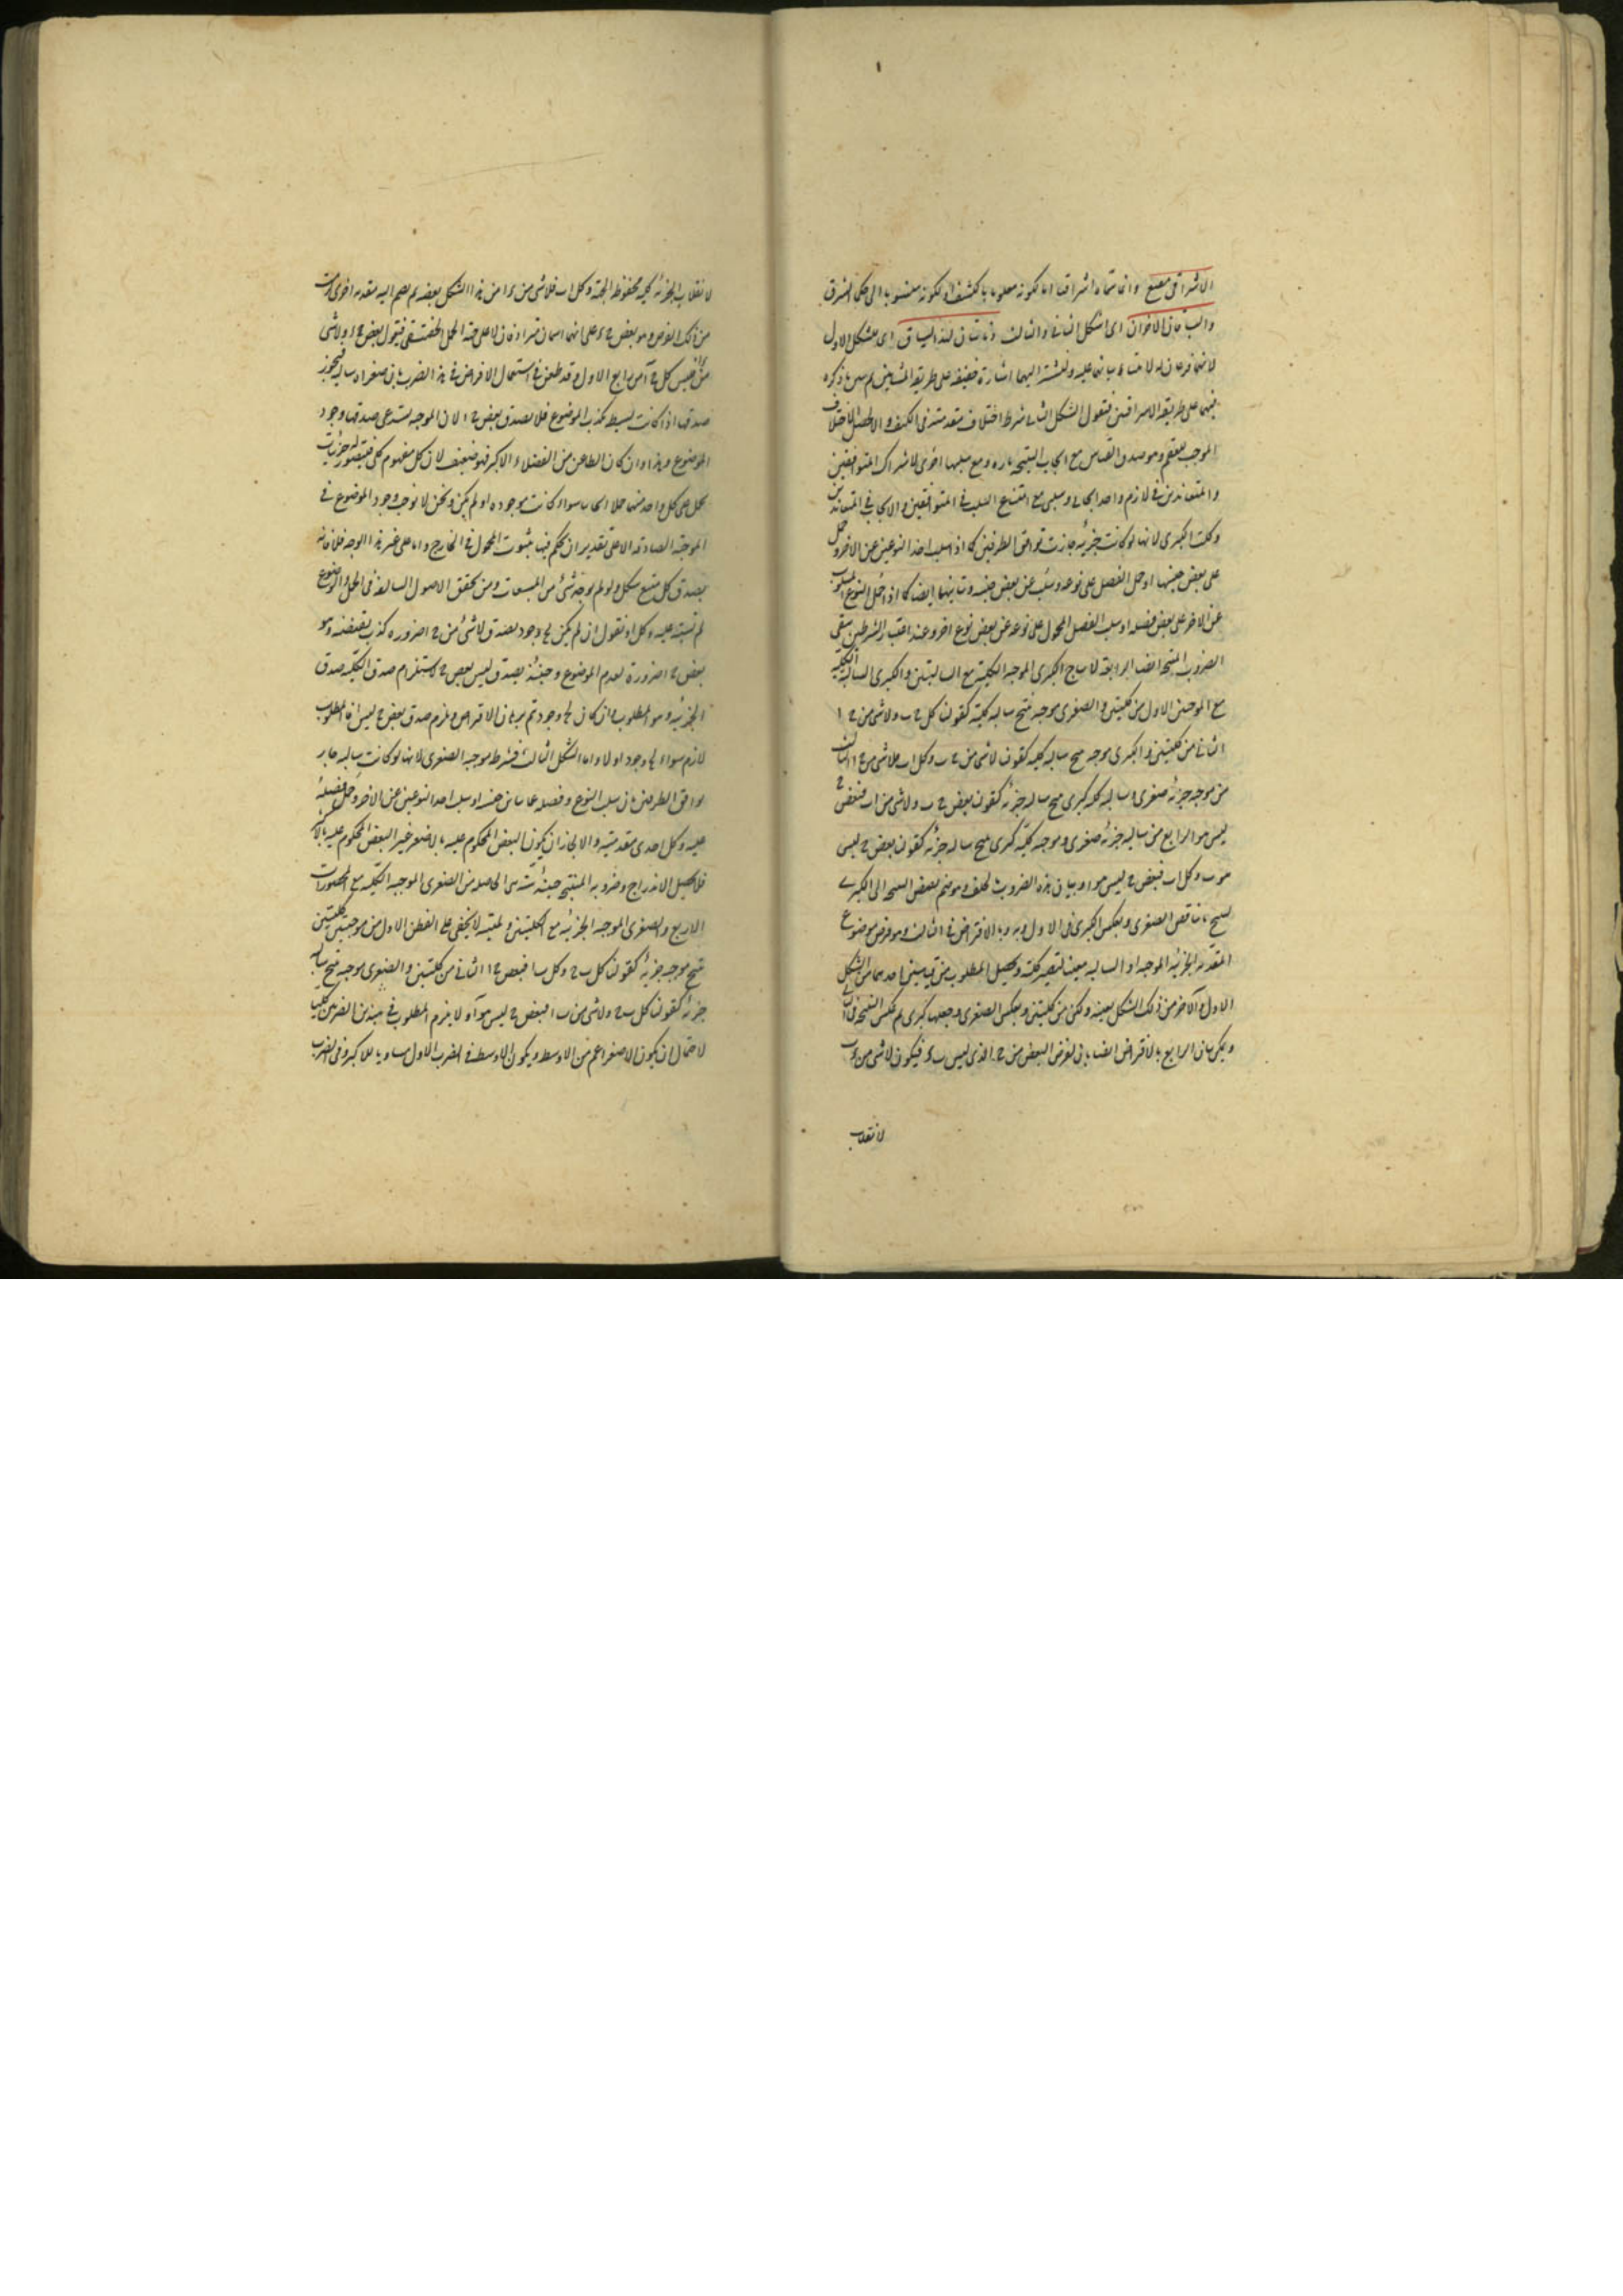 الاشراقى مقنع وانما سماه اشراقيا اما لكونه معلوما بالكشف او لكونه منسوبا الى حكماء الشرق
والسياقان الاخران اى الشكل الثانى والثالث ذنابتان لهذا السياق اى الشكل الاول
لانهما فرعان له
فيهما على طريقة الاشراقيين فنقول الشكل الثانى شرط اختلاف مقدمتيه فى الكيف والا لحصل الاختلاف
الموجب للعقم وهو صدق القياس مع ايجاب النتيجة تارة ومع سلبها اخرى لاشتراك المتوافقين
والمتعاندين فى لازم واحد ايجابى وسلبى مع امتناع السلب فى المتوافقين والايجاب فى المتعاندين
وكلية الكبرى لانها لو كانت جزئية جازت توافق الطرفين كما اذا سلب احد النوعين عن الاخر وحمل
على بعض جنسها او حمل الفصل على نوعه وسلب عن بعض جنسه وتباينهما ايضا كما اذا حمل النوع المسلوب
عن الاخر على بعض فصله او سلب الفصل المحمول على نوعه عن بعض نوع اخر وعند اعتبار الشرطين يبقى
الضروب المنتجة اربعة الكبرى الموجبة الكلية مع السالبتين والكبرى السالبة الكلية
مع الموجبتين الاول من كليتين والصغرى موجبة ينتج سالبة كلية كقولنا كل ج ب ولا شئ من ا ب
الثانى من كليتين والكبرى موجبة ينتج سالبة كلية كقولنا لا شئ من ج ب وكل ا ب فلا شئ من ج ا الثالث
من موجبة جزئية صغرى وسالبة كلية كبرى ينتج سالبة جزئية كقولنا بعض ج ب ولا شئ من ا ب فبعض ج
ليس هو ا الرابع من سالبة جزئية صغرى وموجبة كلية كبرى ينتج سالبة جزئية كقولنا بعض ج ليس
هو ب وكل ا ب فبعض ج ليس هو ا وبيان هذه الضروب بالخلف وهو ضم نقيض النتيجة الى الكبرى
لينتج ما يناقض الصغرى وبعكس الكبرى فى الاول وبه وبالافتراض فى الثالث وهو فرض موضوع
المقدمة الجزئية الموجبة او السالبة معينا لتصير كلية وتحصيل المطلوب من قياسين احدهما من الشكل
الاول والآخر من ذلك الشكل بعينه ولكن من كليتين وبعكس الصغرى وجعلها كبرى ثم عكس النتيجة فى الثانى
ويمكن بيان الرابع بالافتراض ايضا بان نفرض البعض من ج الذى ليس ب ء فيكون لا شئ من ء ب
لانقلاب
لانقلاب الجزئية كلية محفوظة الجهة وكل ا ب فلا شئ من ء ا من هذا الشكل بعينه ثم يضم اليه مقدمة اخرى
من ذلك الفرض وهو بعض ج ء على انهما اسمان مترادفان لا على جهة الحمل الحقيقى فنقول بعض ج ء ولا شئ
من ء ا فليس كل ج ا من رابع الاول وقد طعن فى استعمال الافتراض فى هذا الضرب بان صغراه سالبة فيجوز
صدقها اذا كانت بسيطة بكذب الموضوع فلا يصدق بعض ج ء لان الموجبة تستدعى صدقها وجود
الموضوع وهذا وان كان الطاعن من الفضلاء الاكبر فهو ضعيف لان كل مفهوم كلى فيتصور له جزئيات
يحمل على كل واحد منها حملا ايجابيا سواء كانت موجودة او لم يكن ونحن لا نوجب وجود الموضوع فى
الموجبة الصادقة الا على تقدير ان يحكم فيها بثبوت المحمول فى الخارج واما على غير هذا الوجه فلا فانه
يصدق كل ممتنع ولو لم يوجد شئ من الممتنعات ومن تحقق الاصول السالفة فى الحمل والموضوع
لم يشتبه عليه ذلك او نقول ان لم يكن لج وجود يصدق لا شئ من ج ا ضرورة كذب نقيضه وهو
بعض ج ا ضرورة لعدم الموضوع وحينئذ يصدق ليس بعض ج ا لاستلزام صدق الكلية صدق
الجزئية وهو المطلوب وان كان لج وجود تم برهان الافتراض ويلزم صدق بعض ج ليس ا فالمطلوب
لازم سواء لج وجود او لا واما الشكل الثالث فشرطه موجبة الصغرى لانها لو كانت سالبة جاز
توافق الطرفين بان سلب النوع وفصله عما يباين جنسه او سلب احد النوعين عن الاخر وحمل فصله
عليه وكلية احدى مقدمتيه والا لجاز ان يكون البعض المحكوم عليه بالاصغر غير البعض المحكوم عليه بالاكبر
فلا يحصل الاندراج وضروبه المنتجة حينئذ ستة هى الحاصلة من الصغرى الموجبة الكلية مع المحصورات
الاربع والصغرى الموجبة الجزئية مع الكليتين ولميته لا يخفى على الفطن الاول من موجبتين كليتين
ينتج موجبة جزئية كقولنا كل ب ج وكل ب ا فبعض ج ا الثانى من كليتين والصغرى موجبة ينتج سالبة
جزئية كقولنا كل ب ج ولا شئ من ب ا فبعض ج ليس هو ا ولا يلزم المطلوب فى هذين الضربين كليا
لاحتمال ان يكون الاصغر اعم من الاوسط ويكون الاوسط فى الضرب الاول مساويا للاكبر وفى الضرب